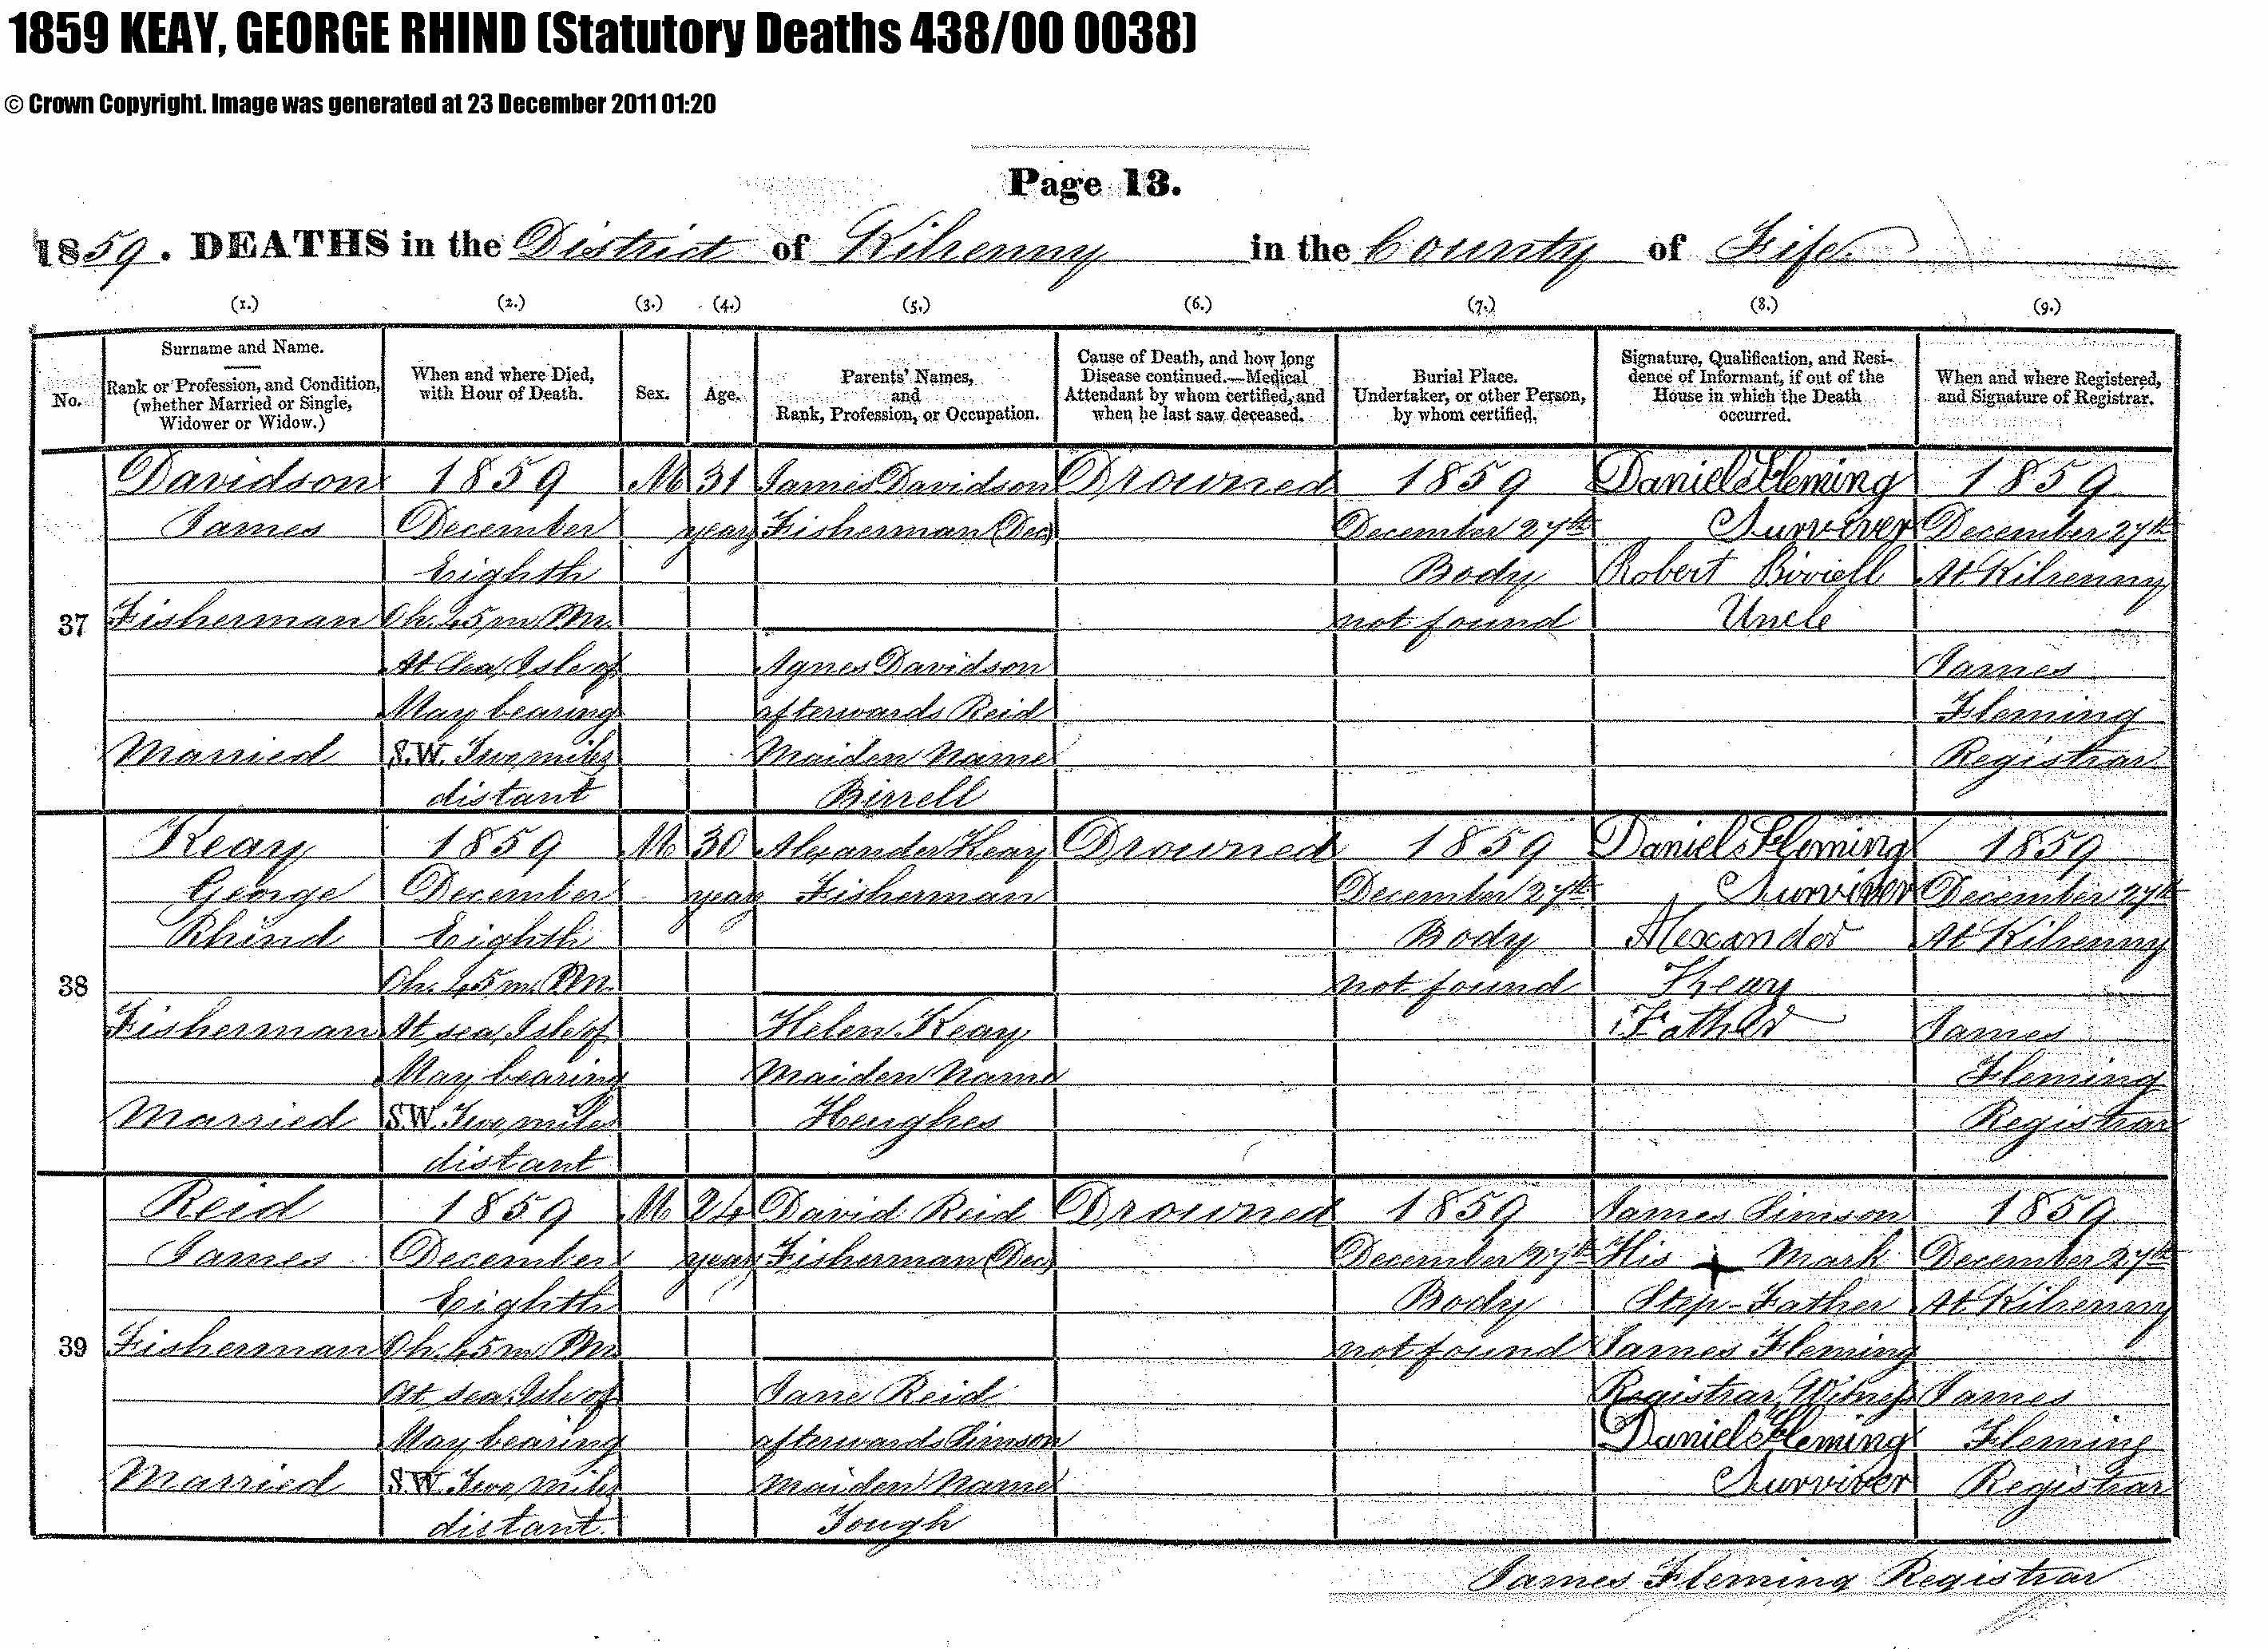 1859 KEAY, GEORGE RHIND (Statutory Deaths 438/00 0038)
© Crown Copyright. Image was generated at 23 December 2011 01:20
Page 13.
1859. DEATHS in the District of Kilrenny in the County of Fife
(1.) (2.) (3.) (4.) (5.) (6.) (7.) (8.) (9.)
No.
Surname and Name.
Rank or Profession, and Condition,
(whether Married or Single,
Widower or Widow.)
When and where Died,
with Hour of Death.
Sex.
Age.
Parents' Names,
and
Rank, Profession, or Occupation.
Cause of Death, and how long
Disease continued.—Medical
Attendant by whom certified, and
when he last saw deceased.
Burial Place.
Undertaker, or other Person,
by whom certified.
Signature, Qualification, and Resi-
dence of Informant, if out of the
House in which the Death
occurred.
When and where Registered,
and Signature of Registrar.
37
Davidson
James
Fisherman
Married
1859
December
Eighth
0h. 45m. P.M.
At Sea, Isle of
May bearing
S.W. Two miles
distant
M
31
years
James Davidson
Fisherman (Dec)
Agnes Davidson
afterwards Reid
Maiden Name
Birrell
Drowned
1859
December 27th
Body
not found
Daniel Fleming
Surviver
Robert Birrell
Uncle
1859
December 27th
At Kilrenny
James
Fleming
Registrar
38
Keay
George
Rhind
Fisherman
Married
1859
December
Eighth
0h. 45m. P.M.
At sea, Isle of
May bearing
S.W. Two miles
distant
M
30
years
Alexander Keay
Fisherman
Helen Keay
Maiden Name
Heughes
Drowned
1859
December 27th
Body
not found
Daniel Fleming
Surviver
Alexander
Keay
Father
1859
December 27th
At Kilrenny
James
Fleming
Registrar
39
Reid
James
Fisherman
Married
1859
December
Eighth
0h. 45m P.M.
At sea, Isle of
May bearing
S.W. Two miles
distant
M
24
years
David Reid
Fisherman (Dec)
Jane Reid
afterwards Simson
Maiden Name
Tough
Drowned
1859
December 27th
Body
not found
James Simson
His + Mark
Step-Father
James Fleming
Registrar, Witness
Daniel Fleming
Surviver
1859
December 27th
At Kilrenny
James
Fleming
Registrar
James Fleming Registrar